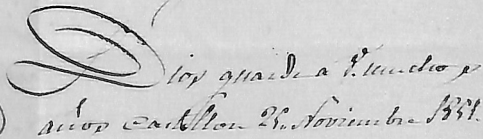 Dios guarde a V. muchos
años Castellon 25 Noviembre 1851.